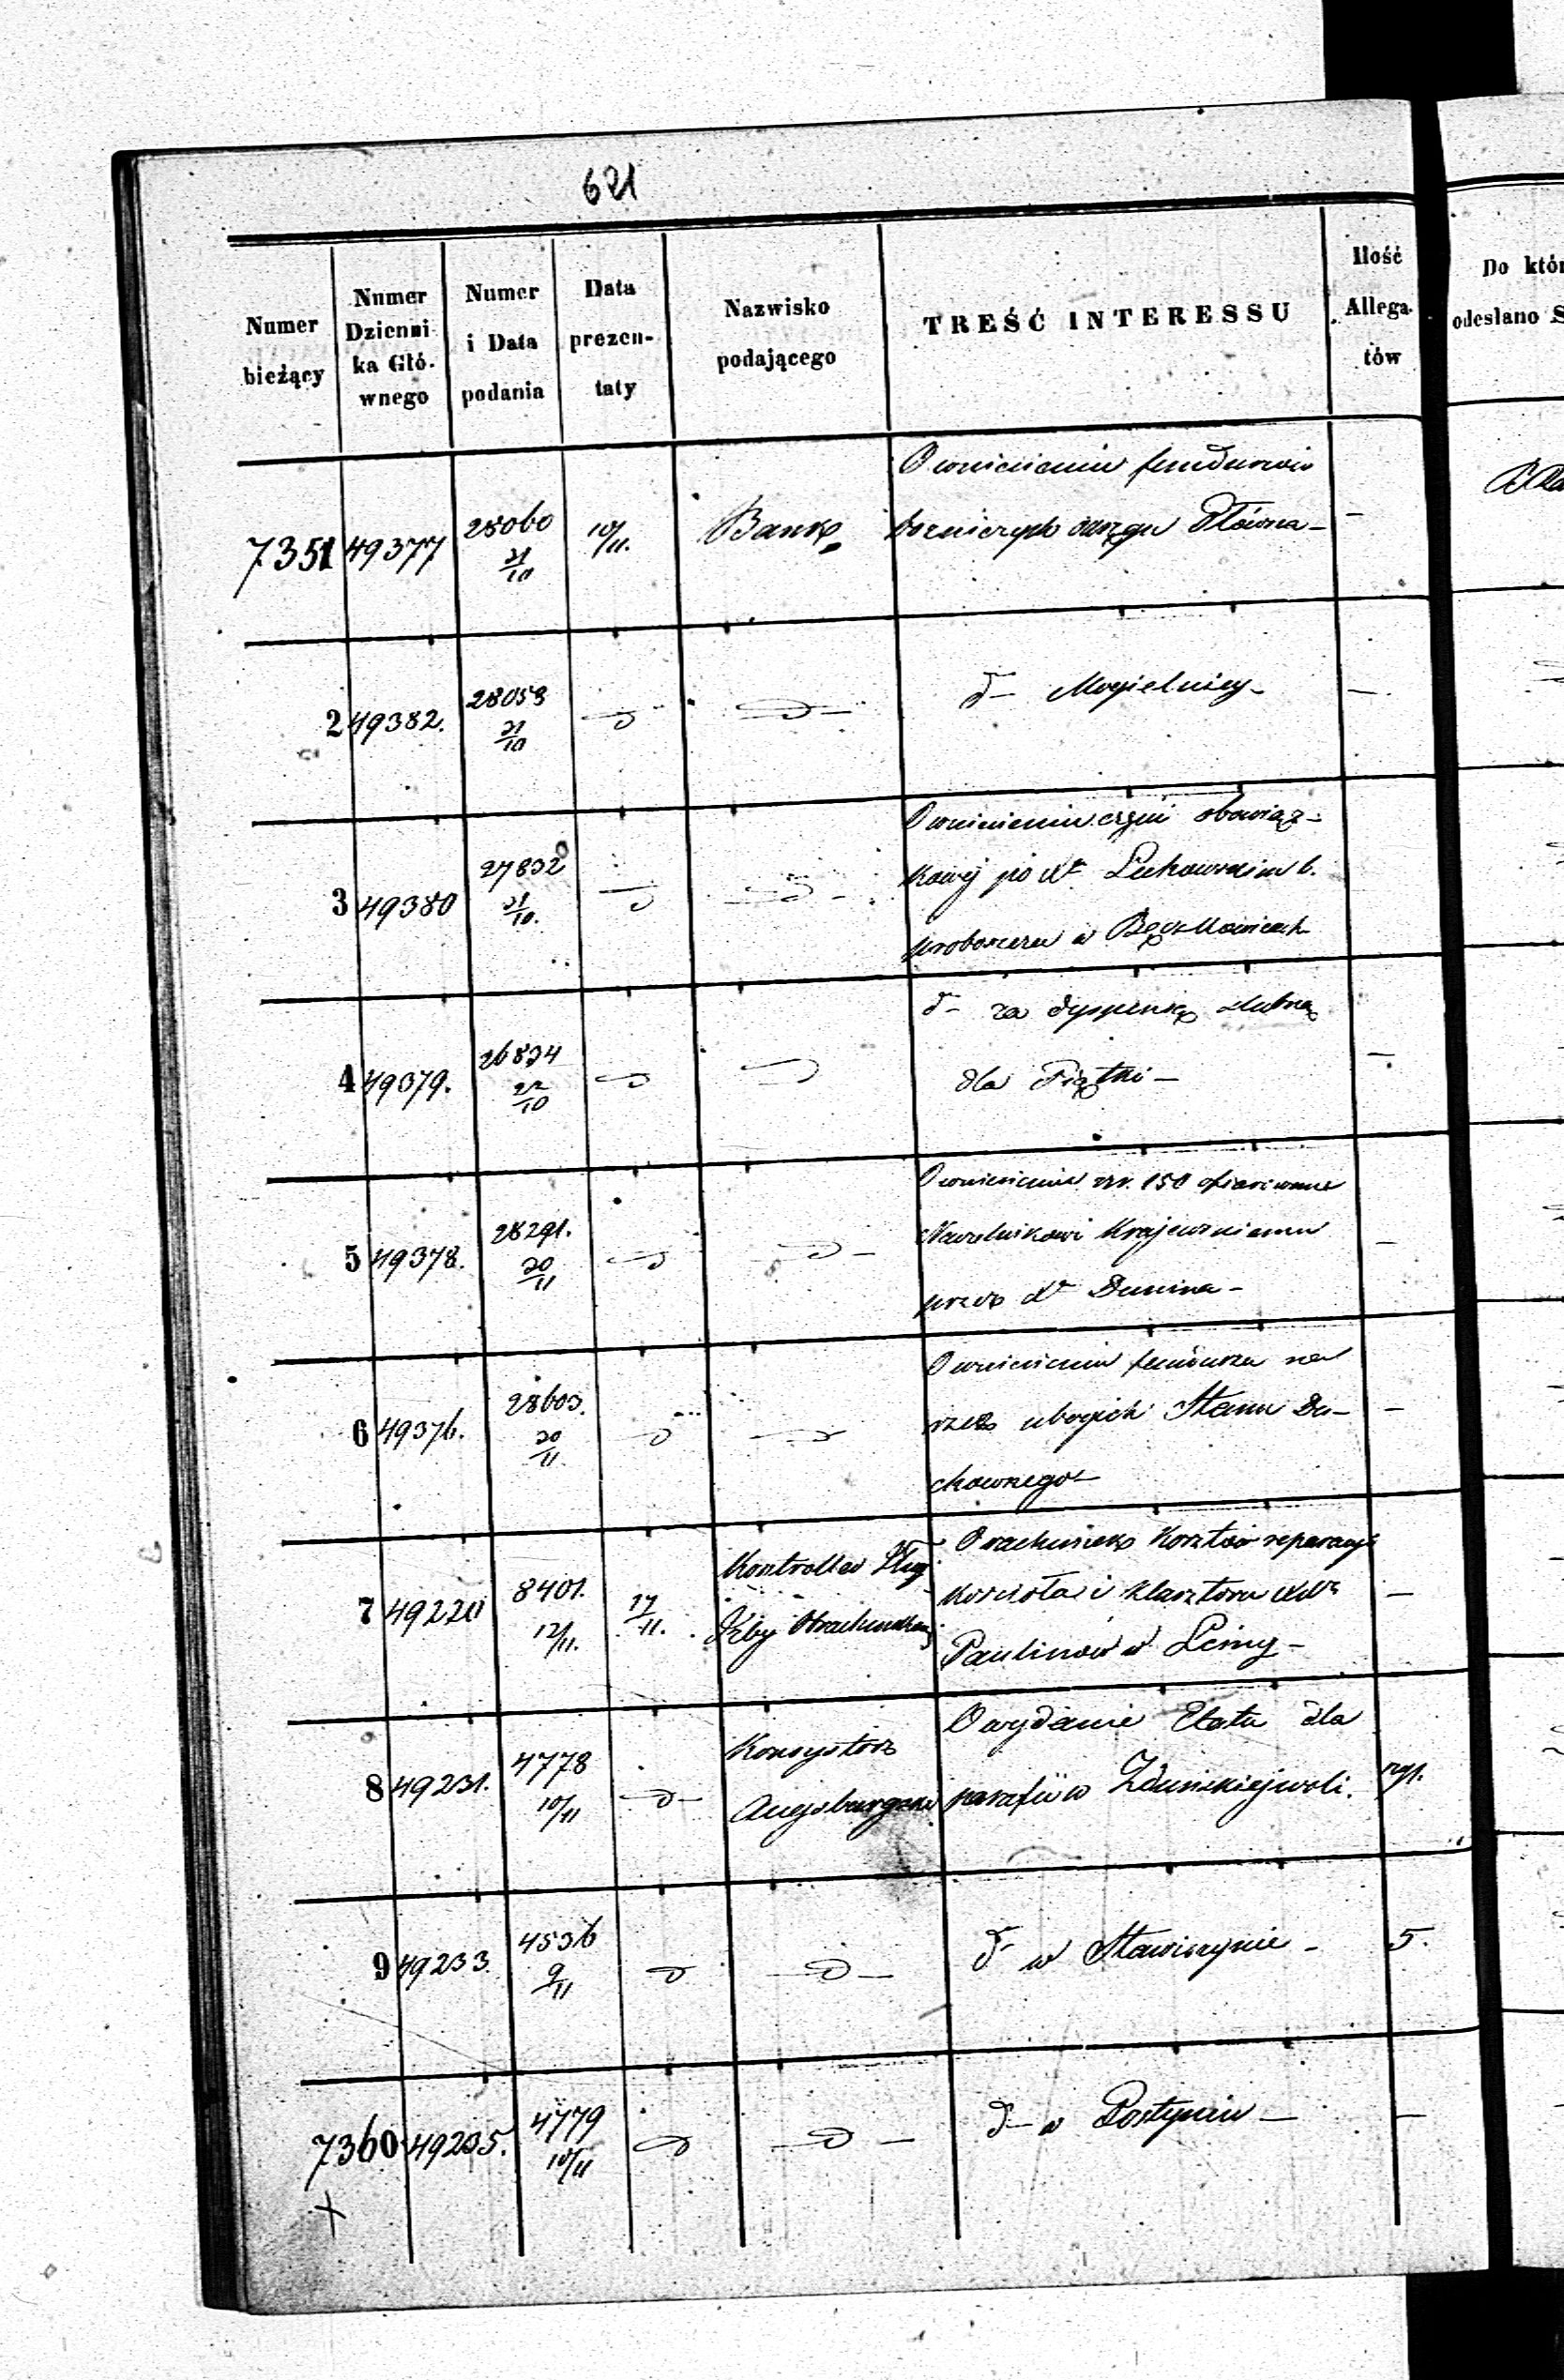 621
Numer bieżący
Numer Dzienni- ka Głó- wnego
Numer i Data podania
Data prezen- taty
Nazwisko podającego
TREŚĆ INTERESSU
Ilość Allega- tów
Do któr
odesłano S
7351 49377 28060 31/10 10/11. Bank
O wniesieniu funduszów
bożniczych okręgu Główna –
2 49382. 28058 31/10 d – Mogielnicy –
3 49380 27832 31/10.
O wniesieniu części obowiąz-
kowej po Xe Łukowskim b.
proboszczu w Bęczkowicach
4 49379. 26834 22/10
d – za dyspensę ślubną
dla Piątki –
5 49378. 28291. 30/11
O wniesieniu rsr. 150 ofiarowane
Naczelnikowi Krajewskiemu
przez Xa Dunina –
6 49376. 28603. 30/11
O wniesieniu funduszu na
rzecz ubogich Stanu Du-
chownego –
7 49220 8401. 12/11. 17/11.
Kontroller
Izby Obrachunkowej
O rachunek kosztów reparacyi
kościoła i klasztoru XXx
Paulinów w
8 49231. 4778 10/11
Konsystorz
Augsburgski
O wydanie Etatu dla
parafii w Zduńskiejwoli.
9 49233. 4536 9/11 d – w Stawiszynie – 5.
7360 49235. 4779 10/11 d – w Gostyniu –